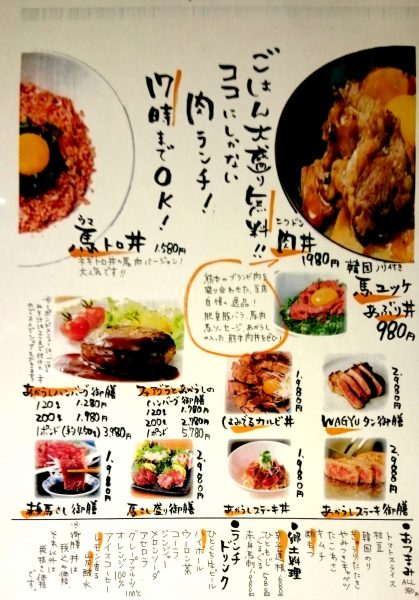 ごはん大盛り無料!!
ココにしかない
肉ランチ!
17時までOK!
ウマ
馬トロ丼 1580円
ネギトロ丼の馬肉バージョン!
大人気です!!
ニクドン
肉丼
1980円
熊本のブランド肉を
盛り合わせた、当店
自慢の逸品!
肥皇豚バラ、馬肉
馬ソーセージ、あかうし
の入った熊本肉丼をぜひ!
韓国ノリ付き
馬ユッケ
あぶり丼
980円
あかうしハンバーグ御膳
120g 1.280円
200g 1.980円
1ポンド(約450g) 3.980円
フォアグラとあかうしの
ハンバーグ御膳
120g 1.980円
200g 2.780円
1ポンド 5.780円
はみでるカルビ丼
1.980円
WAGYUタン御膳
2.980円
桜馬さし御膳
1.980円
厚さし盛り御膳
2.980円
あかうしステーキ丼
1.980円
あかうしステーキ御膳
2.980円
●おつまみ
トマトスライス
枝豆
韓国のり
やみつきキャベツ
きゅうりたたき
たこわさ
キムチ
●郷土料理
●ランチ
ドリンク
ハイボール
ウーロン茶
コーラ
ジンジャー
メロンソーダ
アセロラ
グレープフルーツ100%
オレンジ100%
アイスコーヒー
炭酸水
※御膳、丼は
税込み価格
それ以外は
税抜き価格